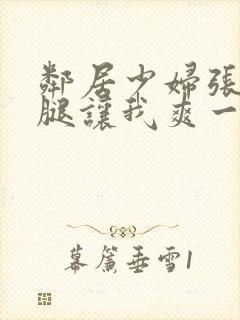 鄰居少婦張
腿讓我爽一
幕簾垂雪1